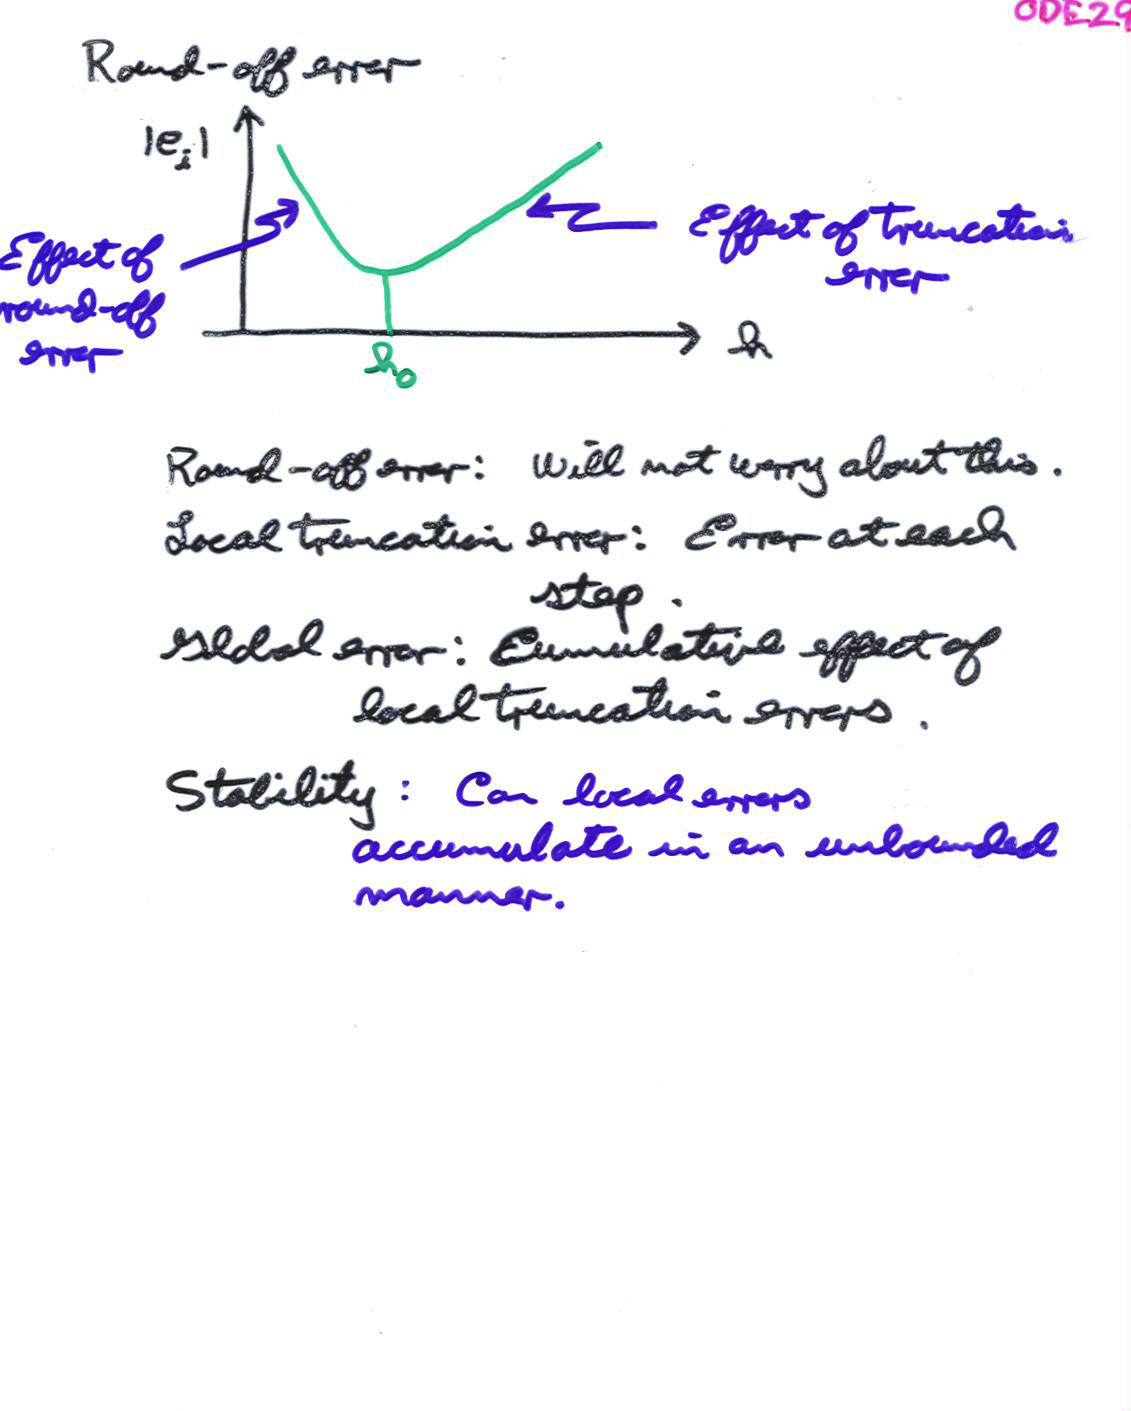 ODE29
Round-off error
|e_i|
Effect of
round-off
error
Effect of truncation
error
h
h_0
Round-off error: Will not worry about this.
Local truncation error: Error at each
step.
Global error: Cumulative effect of
local truncation errors.
Stability: Can local errors
accumulate in an unbounded
manner.